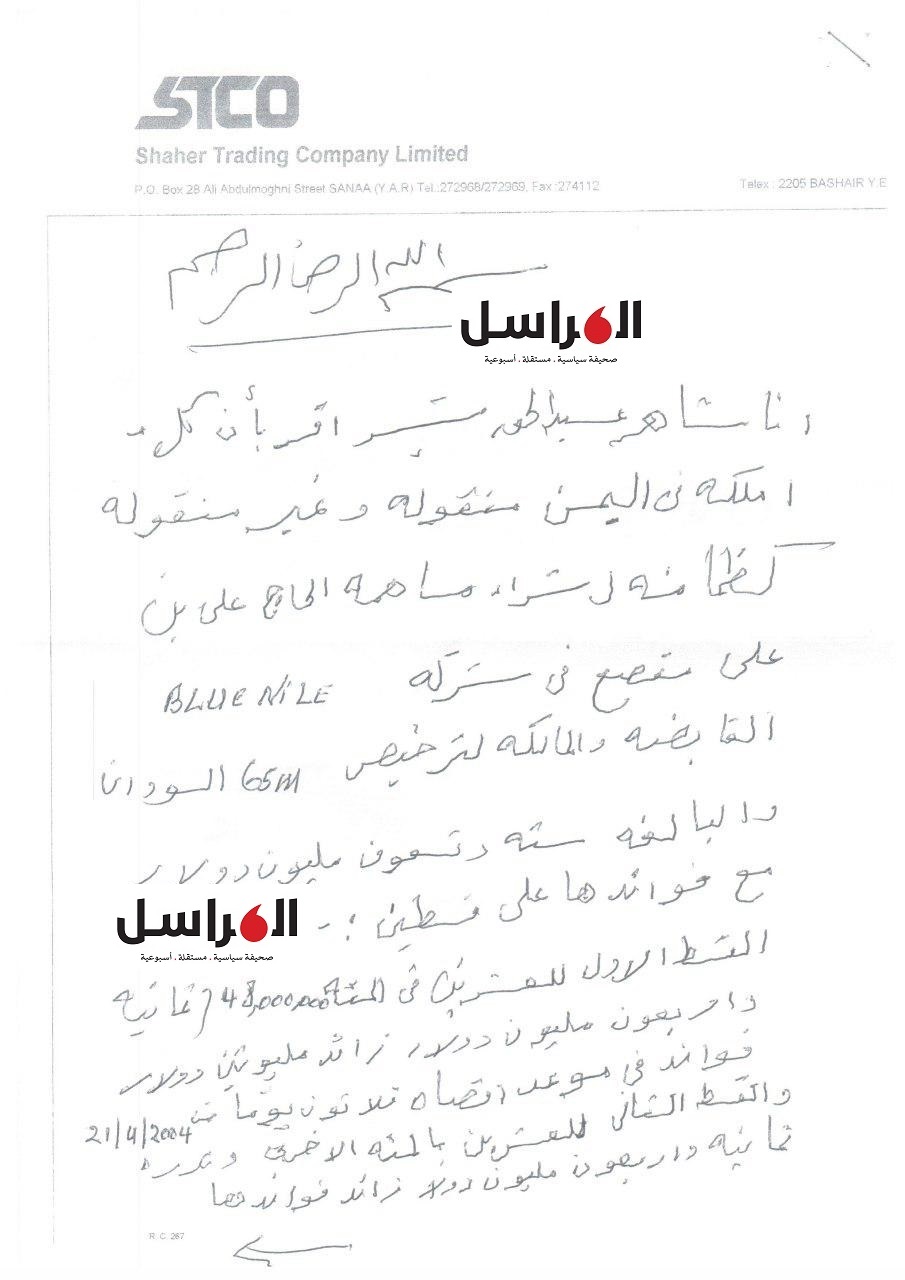 STCO
Shaher Trading Company Limited
P.O. Box 28 Ali Abdulmoghni Street SANAA (Y.A.R) Tel.:272968/272969, Fax :274112
Telex : 2205 BASHAIR Y.E
بسم الله الرحمن الرحيم
المراسل
صحيفة سياسية . مستقلة . أسبوعية
انا شاهر عبدالحق بشر اقر بأن كل
املكه في اليمن منقوله وغير منقوله
منه في شراء مساهمة الحاج علي بن
على مقصع في شركه BLUE NILE
القابضه والمالكه لترخيص GSM السودان
والبالغه سته وتسعون مليون دولار
مع فوائدها على قسطين :-
المراسل
صحيفة سياسية . مستقلة . أسبوعية
القسط الاول للعشرين في المئه 48,000,000 ( ثمانيه
واربعون مليون دولار زائد مليونين دولار
فوائد في موعد اقصاه ثلاثون يوما من 21/4/2004
والقسط الثاني للعشرين بالمئه الاخرى وقدره
ثمانيه واربعون مليون دولار زائد فوائدها
R.C. 267